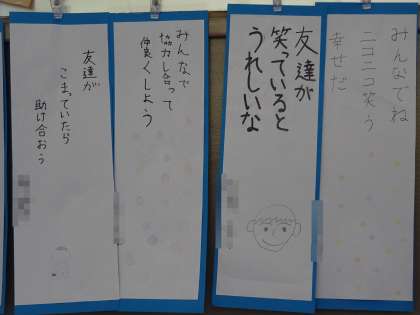 みんなでね
ニコニコ笑う
幸せだ
友達が
笑っていると
うれしいな
みんなで
協力し合って
仲良くしよう
友達が
こまっていたら
助け合おう